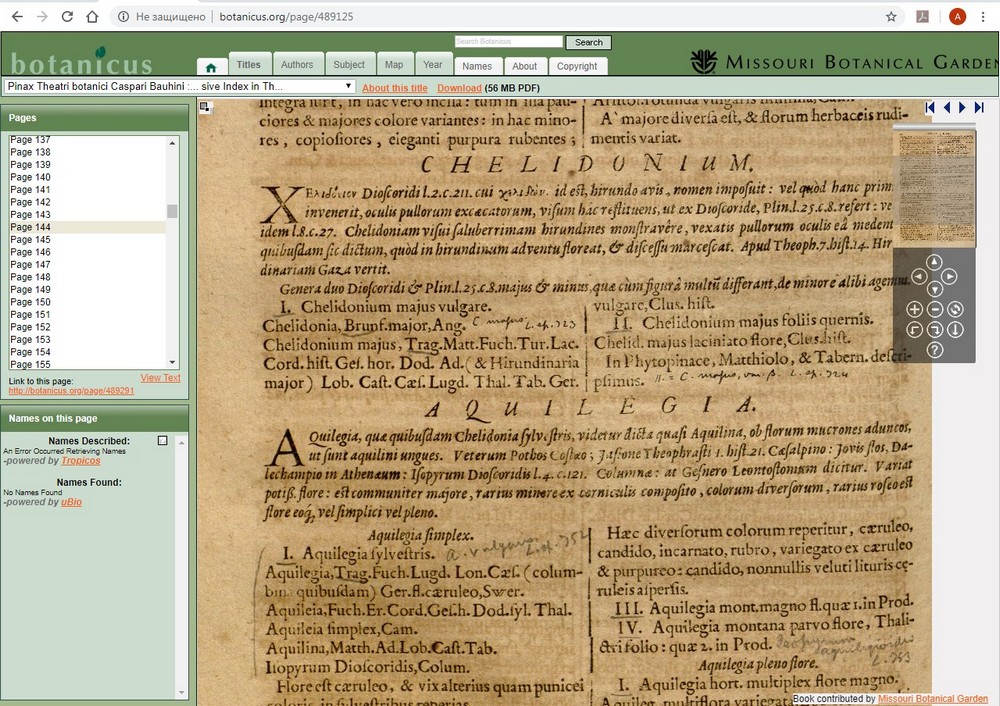 Не защищено
botanicus.org/page/489125
A
botanicus
Titles
Authors
Subject
Map
Year
Search Botanicus
Search
Names
About
Copyright
MISSOURI BOTANICAL GARDEN
Pinax Theatri botanici Caspari Bauhini :... sive Index in Th...
About this title
Download (56 MB PDF)
Pages
Page 137
Page 138
Page 139
Page 140
Page 141
Page 142
Page 143
Page 144
Page 145
Page 146
Page 147
Page 148
Page 149
Page 150
Page 151
Page 152
Page 153
Page 154
Page 155
Link to this page:
View Text
http://botanicus.org/page/489291
Names on this page
Names Described:
An Error Occurred Retrieving Names
-powered by Tropicos
Names Found:
No Names Found
-powered by uBio
ciores & majores colore variantes : in hac mino-
res , copiosiores , eleganti purpura rubentes ;
A' majore diversa est, & florum herbaceis rudi-
mentis variat.
CHELIDONIUM.
Dioscoridi l.2.c.211. cui id est, hirundo avis, nomen imposuit : vel quòd hanc prim
invenerit, oculis pullorum excæcatorum, visum hac restituens, ut ex Dioscoride, Plin.l.25.c.8. refert : ve
idem l.8.c.27. Chelidoniam visui saluberrimam hirundines monstravêre, vexatis pullorum oculis eâ medent
quibusdam sic dictum, quòd in hirundinum adventu floreat, & discessu marcescat. Apud Theoph.7.hist.14. Hir
dinariam Gaza vertit.
Genera duo Dioscoridi & Plin.l.25.c.8. majus & minus, quæ cùm figurâ multũ differant, de minore alibi agemus.
I. Chelidonium majus vulgare.
Chelidonia, Brunf.major, Ang. C majus L. sp. 723
Chelidonium majus, Trag.Matt.Fuch.Tur.Lac.
Cord.hist. Ges. hor. Dod. Ad. ( & Hirundinaria
major ) Lob. Cast. Cæs. Lugd. Thal. Tab. Ger.
vulgare, Clus. hist.
II. Chelidonium majus foliis quernis.
Chelid. majus laciniato flore, Clus.hist.
In Phytopinace, Matthiolo, & Tabern. descri-
psimus. II. = C. majus, var. β. L. sp. 724
AQUILEGIA.
AQuilegia, quæ quibusdam Chelidonia sylvestris, videtur dicta quasi Aquilina, ob florum mucrones aduncos,
ut sunt aquilini ungues. Veterum Pothos Costæo ; Jasione Theophrasti 1. hist.21. Cæsalpino : Jovis flos, Da-
lechampio in Athenæum : Isopyrum Dioscoridis l.4.c.121. Columnæ : at Gesnero Leontostomum dicitur. Variat
potiß. flore : est communiter majore, rarius minore ex corniculis composito, colorum diversorum, rarius roseo est
flore eoq́, vel simplici vel pleno.
Aquilegia simplex.
I. Aquilegia sylvestris. a. vulgaris L. sp. 752
Aquilegia, Trag.Fuch.Lugd. Lon.Cæs. ( colum-
bina quibusdam) Ger.fl.cæruleo, Swer.
Aquileia, Fuch.Er.Cord.Gesh. Dod.syl. Thal.
Aquileia simplex, Cam.
Aquilina, Matth.Ad.Lob.Cast.Tab.
Isopyrum Dioscoridis, Colum.
Flore est cæruleo, & vix alterius quam punicei
coloris, in sylvestribus reperias
Hæc diversorum colorum reperitur, cæruleo,
candido, incarnato, rubro, variegato ex cæruleo
& purpureo : candido, nonnullis veluti lituris cę-
ruleis aspersis.
III. Aquilegia mont.magno fl.quæ 1.in Prod.
IV. Aquilegia montana parvo flore, Thali-
ctri folio : quæ 2. in Prod. Isopyrum aquilegioides L. 753
Aquilegia pleno flore.
I. Aquilegia hort. multiplex flore magno.
Book contributed by Missouri Botanical Garden